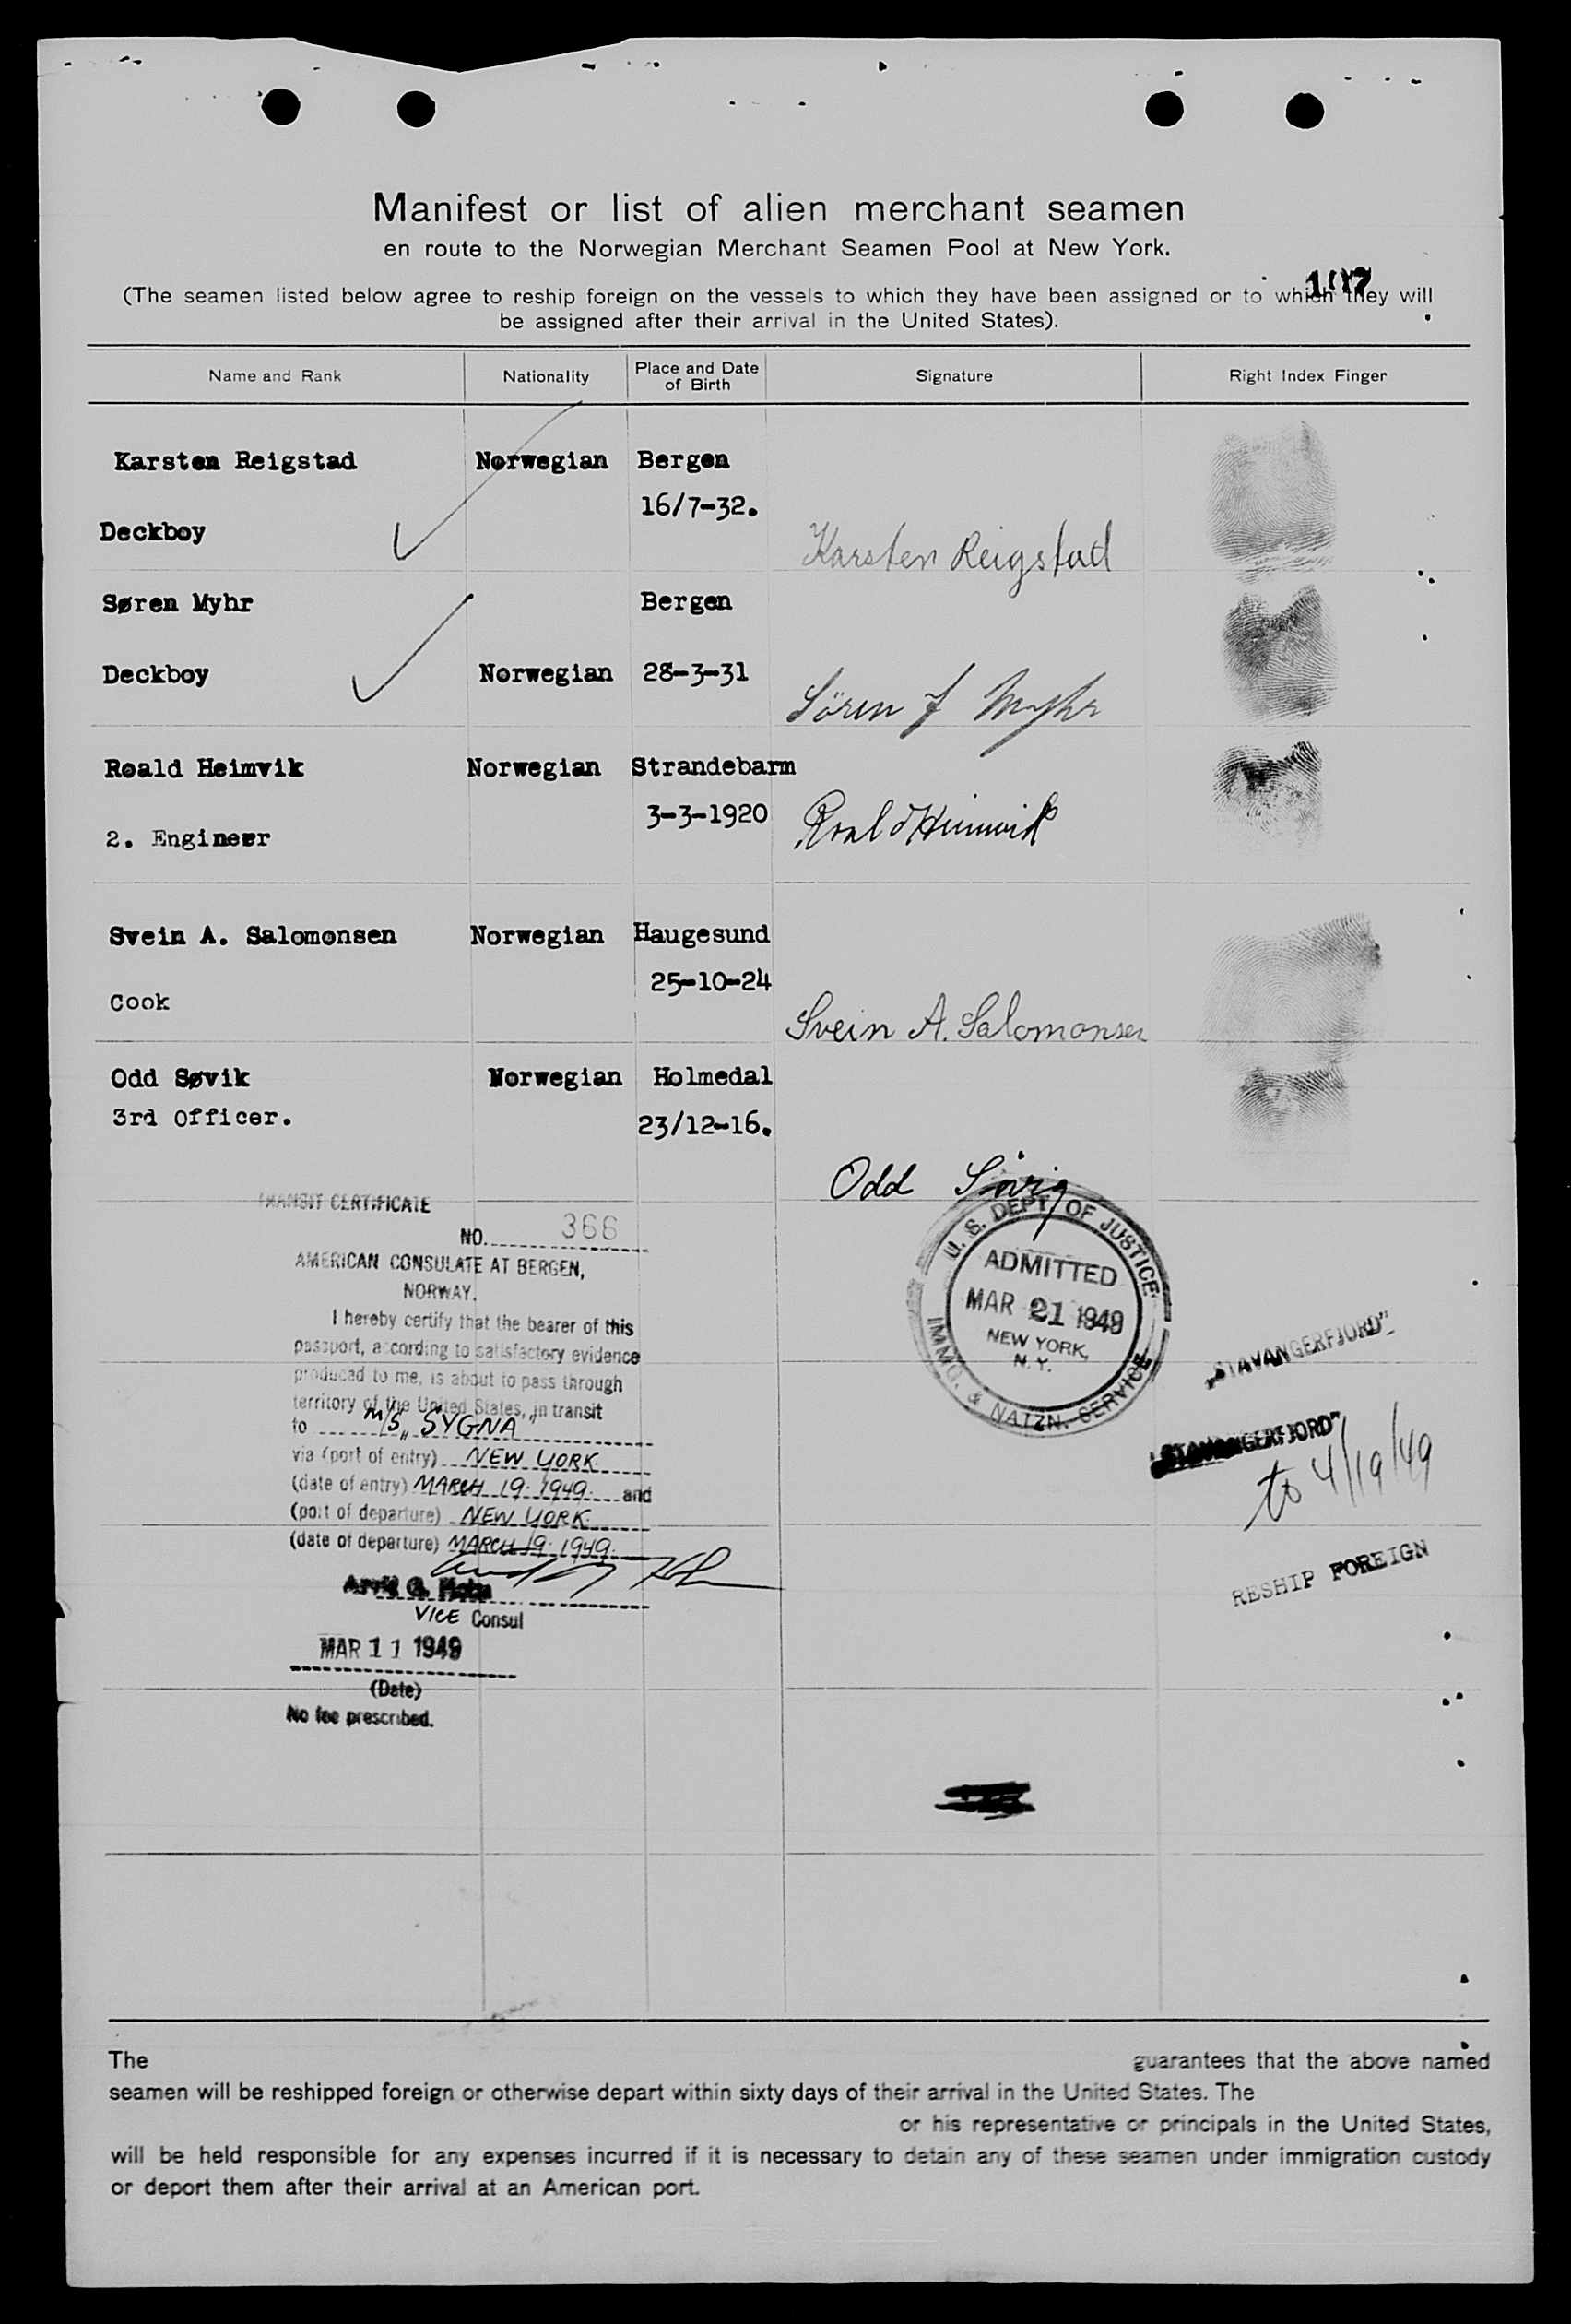 Manifest or list of alien merchant seamen
en route to the Norwegian Merchant Seamen Pool at New York.
107
(The seamen listed below agree to reship foreign on the vessels to which they have been assigned or to which they will
be assigned after their arrival in the United States).
Name and Rank Nationality Place and Date of Birth Signature Right Index Finger
Karsten Reigstad Norwegian Bergen
16/7-32.
Deckboy
Karsten Reigstad
Søren Myhr Bergen
Deckboy Norwegian 28-3-31
Sören J Myhr
Roald Heimvik Norwegian Strandebarm
3-3-1920
Roald Heimvik
2. Engineer
Svein A. Salomonsen Norwegian Haugesund
25-10-24
Cook
Svein A. Salomonsen
Odd Søvik Norwegian Holmedal
3rd Officer. 23/12-16.
Odd Sövig
TRANSIT CERTIFICATE
NO. 366
AMERICAN CONSULATE AT BERGEN,
NORWAY.
I hereby certify that the bearer of this
passport, according to satisfactory evidence
produced to me, is about to pass through
territory of the United States, in transit
to M/S „SYGNA"
via (port of entry) NEW YORK
(date of entry) MARCH 19. 1949. and
(port of departure) NEW YORK
(date of departure) MARCH 19. 1949.
VICE Consul
MAR 11 1949
(Date)
No fee prescribed.
U. S. DEPT. OF JUSTICE
ADMITTED
MAR 21 1949
NEW YORK,
N. Y.
IMMG. & NATZN. SERVICE
„STAVANGERFJORD"
„STAVANGERFJORD"
to 4/19/49
RESHIP FOREIGN
The guarantees that the above named
seamen will be reshipped foreign or otherwise depart within sixty days of their arrival in the United States. The
or his representative or principals in the United States,
will be held responsible for any expenses incurred if it is necessary to detain any of these seamen under immigration custody
or deport them after their arrival at an American port.